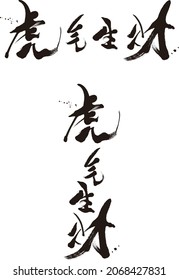 虎气生财
虎
气
生
财
www.shutterstock.com · 2068427831